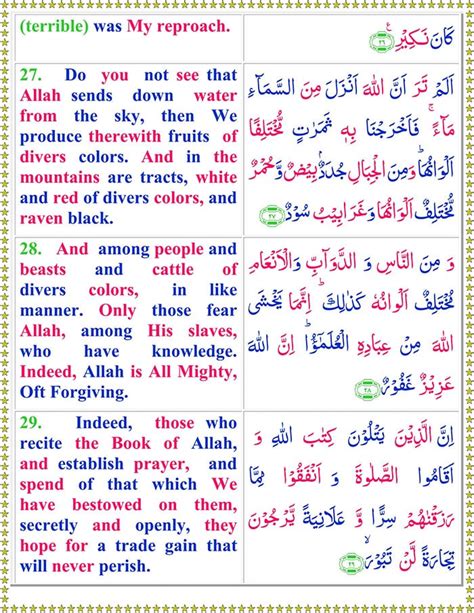 (terrible) was My reproach.
كَانَ نَكِيْرِ ۲۶
27. Do you not see that
Allah sends down water
from the sky, then We
produce therewith fruits of
divers colors. And in the
mountains are tracts, white
and red of divers colors, and
raven black.
اَلَمْ تَرَ اَنَّ اللّٰهَ اَنْزَلَ مِنَ السَّمَآءِ
مَآءً ۚ فَاَخْرَجْنَا بِهٖ ثَمَرٰتٍ مُّخْتَلِفًا
اَلْوَانُهَا ؕ وَمِنَ الْجِبَالِ جُدَدٌۢ بِيْضٌ وَّحُمْرٌ
مُّخْتَلِفٌ اَلْوَانُهَا وَغَرَابِيْبُ سُوْدٌ ۲۷
28. And among people and
beasts and cattle of
divers colors, in like
manner. Only those fear
Allah, among His slaves,
who have knowledge.
Indeed, Allah is All Mighty,
Oft Forgiving.
وَ مِنَ النَّاسِ وَ الدَّوَآبِّ وَ الْاَنْعَامِ
مُخْتَلِفٌ اَلْوَانُهٗ كَذٰلِكَ ؕ اِنَّمَا يَخْشَى
اللّٰهَ مِنْ عِبَادِهِ الْعُلَمٰٓؤُا ؕ اِنَّ اللّٰهَ
عَزِيْزٌ غَفُوْرٌ ۲۸
29. Indeed, those who
recite the Book of Allah,
and establish prayer, and
spend of that which We
have bestowed on them,
secretly and openly, they
hope for a trade gain that
will never perish.
اِنَّ الَّذِيْنَ يَتْلُوْنَ كِتٰبَ اللّٰهِ وَ
اَقَامُوا الصَّلٰوةَ وَ اَنْفَقُوْا مِمَّا
رَزَقْنٰهُمْ سِرًّا وَّ عَلَانِيَةً يَّرْجُوْنَ
تِجَارَةً لَّنْ تَبُوْرَ ۲۹